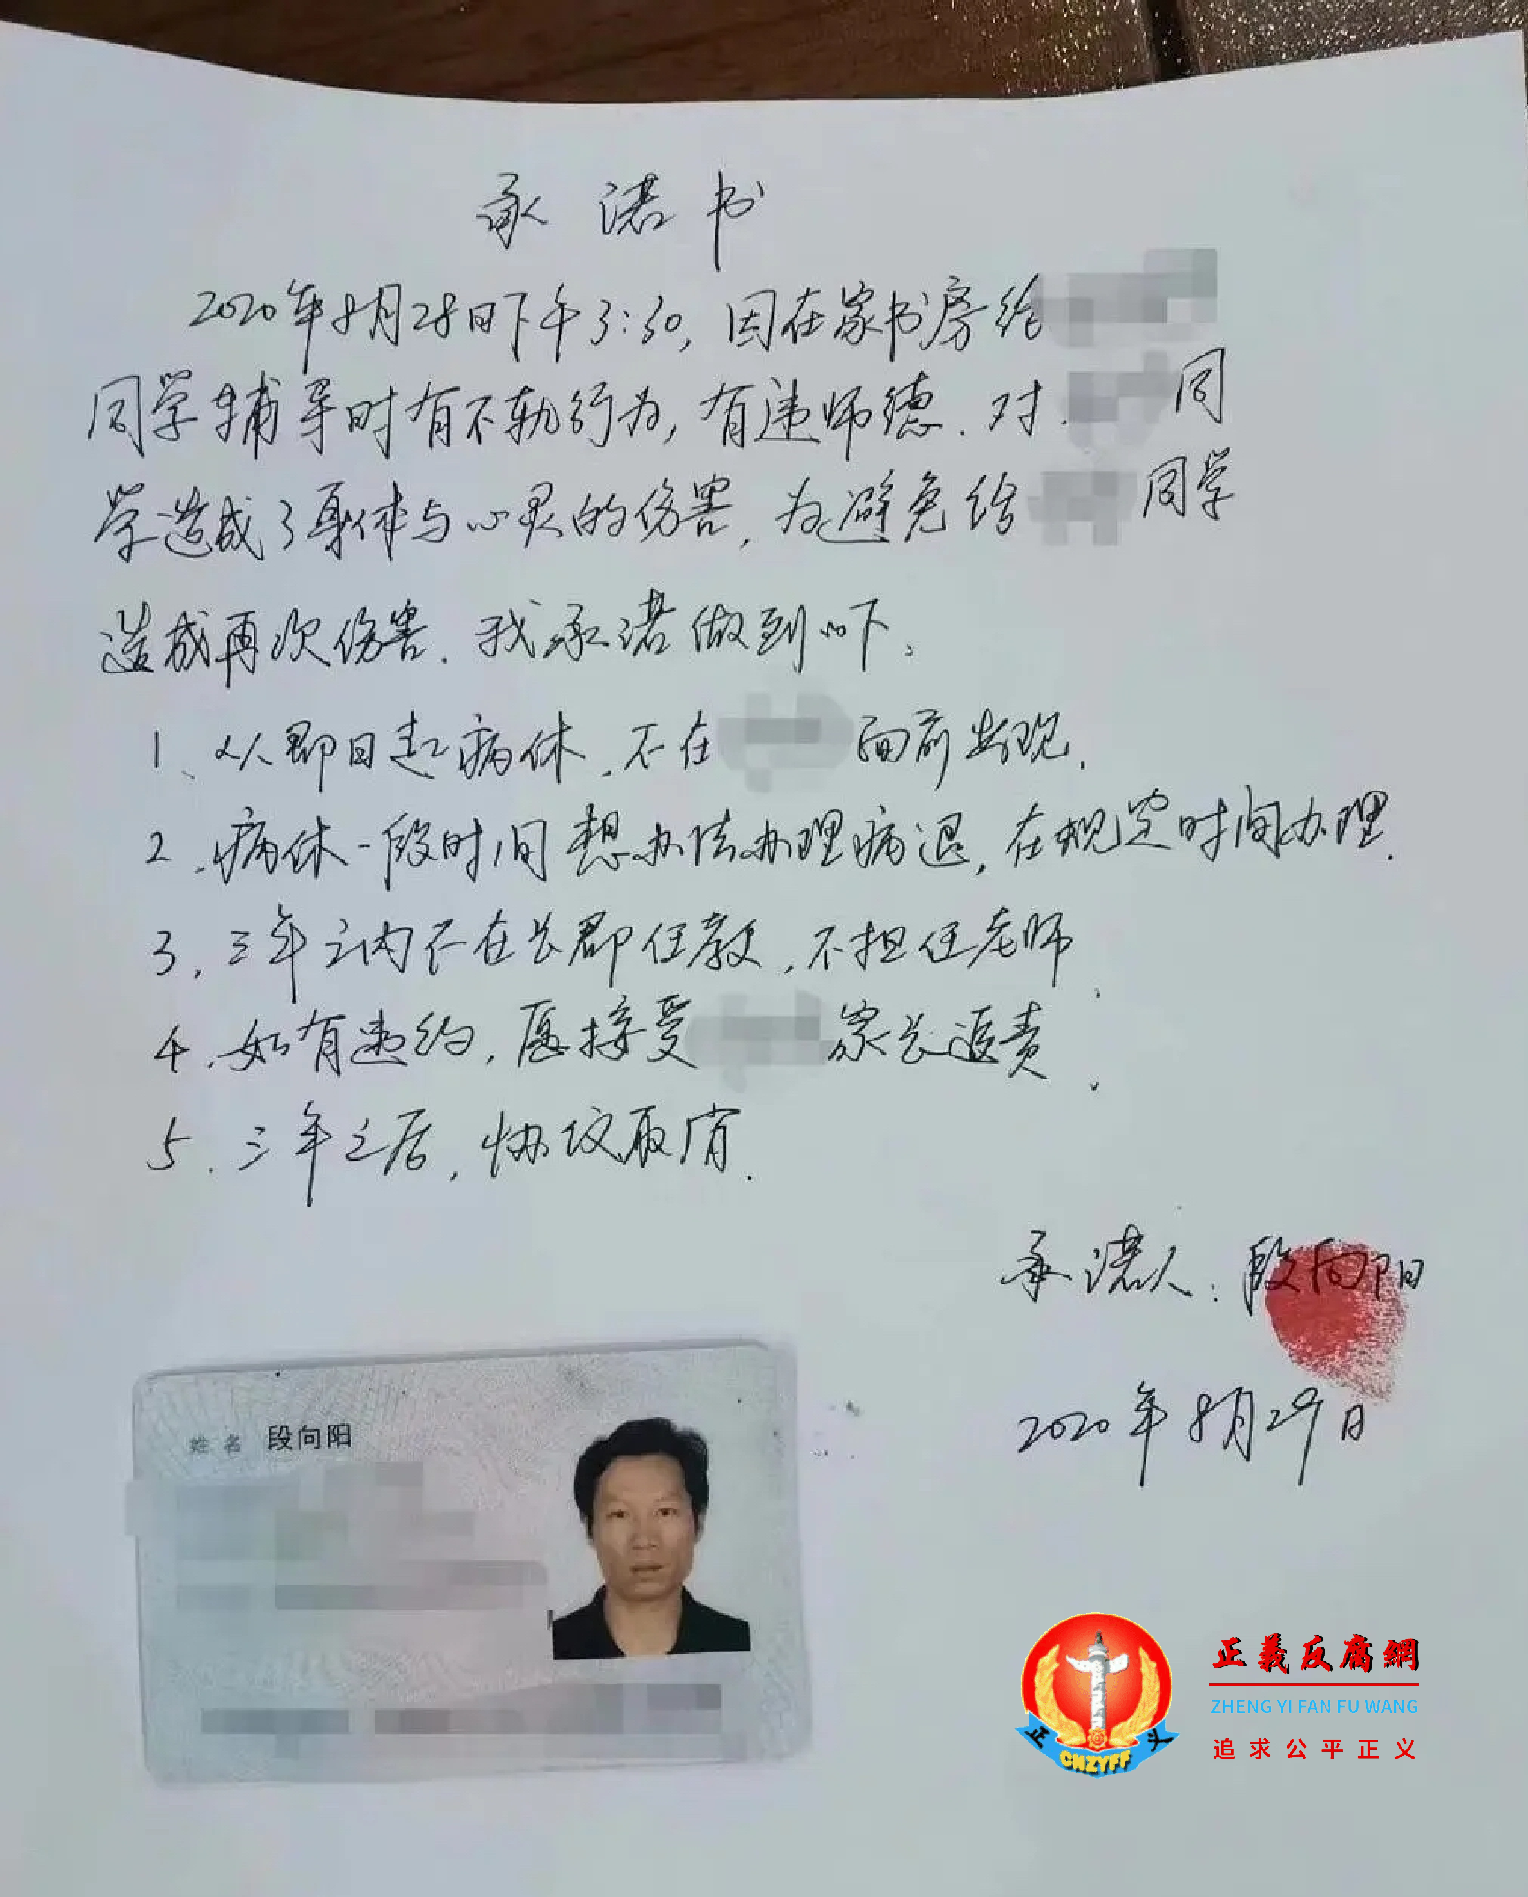 承诺书
2020年8月28日下午3:30,因在家书房给
同学辅导时有不轨行为,有违师德.对 同
学造成了身体与心灵的伤害,为避免给 同学
造成再次伤害.我承诺做到如下:
1、从即日起病休,不在 面前出现.
2、病休一段时间想办法办理病退,在规定时间办理.
3、三年之内不在长郡任教,不担任老师.
4、如有违约,愿接受 家长追责.
5、三年之后,协议取消.
承诺人:段向阳
2020年8月29日
姓名 段向阳
正義反腐網
ZHENG YI FAN FU WANG
追求公平正义
正 义
CNZYFF